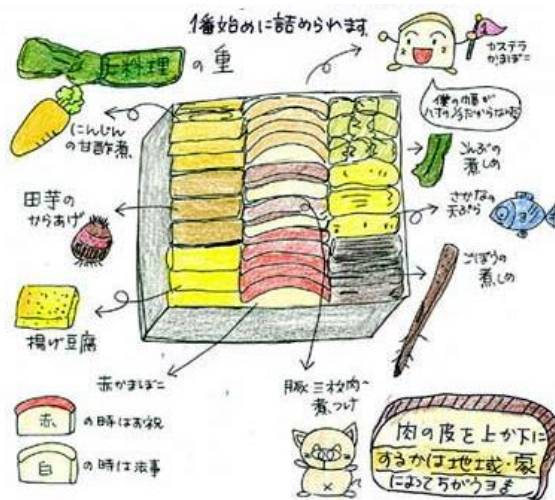 1番始めに詰められます
料理の重
カステラ
かまぼこ
僕の幅が
にんじん
の甘酢煮
こんぶの
煮しめ
田芋の
からあげ
さかなの
天ぷら
ごぼうの
煮しめ
揚げ豆腐
赤かまぼこ
豚三枚肉〜
煮つけ
赤の時はお祝
白の時は法事
肉の皮を上か下に
するかは地域・家
によってちがうヨ